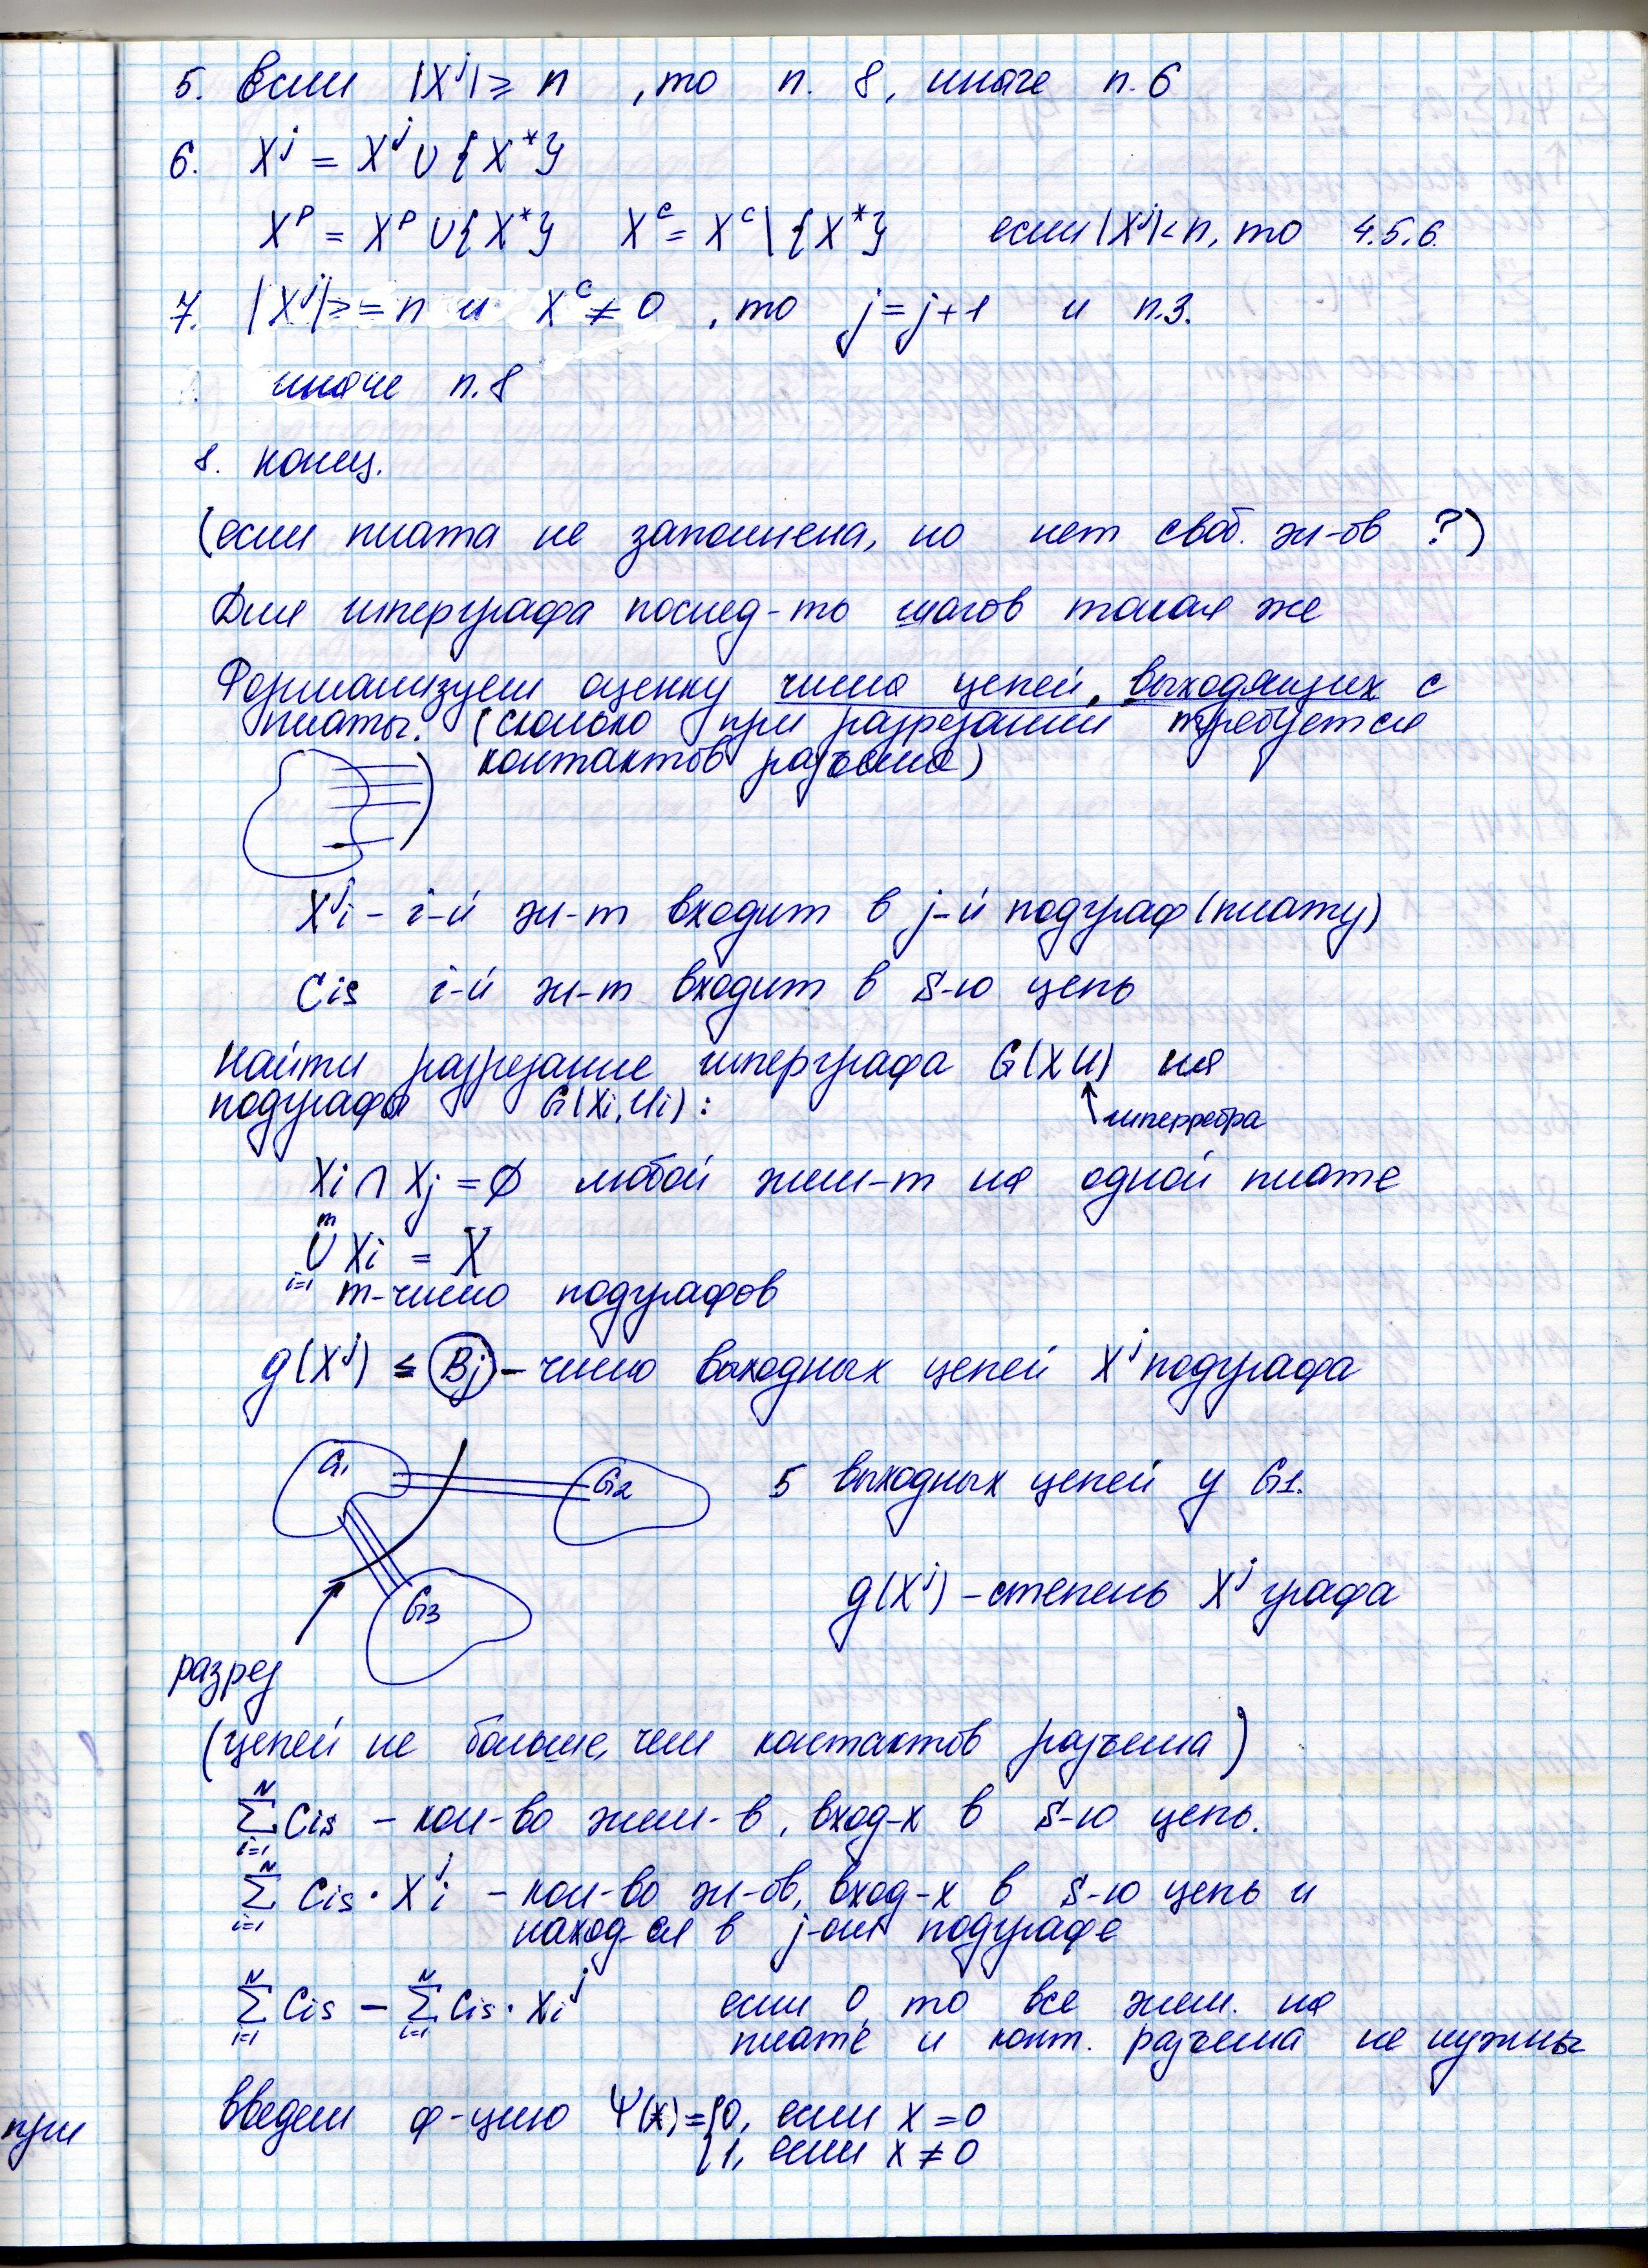 5. Если |X^j| ≥ n , то п. 8, иначе п. 6
6. X^j = X^j ∪ {X*}
X^p = X^p ∪ {X*} X^c = X^c \ {X*} если |X^j| < n, то 4.5.6.
7. |X^j| >= n и X^c ≠ 0 , то j = j+1 и п.3.
иначе п.8
8. конец.
(если плата не заполнена, но нет своб. эл-ов ?)
Для гиперграфа послед-ть шагов такая же
Формализуем оценку числа цепей, выходящих с
платы. (сколько при разрезании требуется
контактов разъема)
X^j i – i-й эл-т входит в j-й подграф (плату)
Cis i-й эл-т входит в S-ю цепь
Найти разрезание гиперграфа G(X U) на
подграфы G(Xi, Ui) :
гиперребра
Xi ∩ Xj = ∅ любой элем-т на одной плате
m
∪ Xi = X
i=1
m-число подграфов
g(X^j) ≤ Bj – число выходных цепей X^j подграфа
G1
G2
5 выходных цепей у G1.
G3
g(X^j) – степень X^j графа
разрез
(цепей не больше, чем контактов разъема)
∑_{i=1}^{N} Cis – кол-во элем-в, вход-х в S-ю цепь.
∑_{i=1}^{N} Cis · X^j i – кол-во эл-ов, вход-х в S-ю цепь и
наход-ся в j-ом подграфе
∑_{i=1}^{N} Cis – ∑_{i=1}^{N} Cis · Xi^j если 0, то все элем. на
плате и конт. разъема не нужны
введем ф-цию Ψ(x) = {0, если x = 0
{1, если x ≠ 0
при